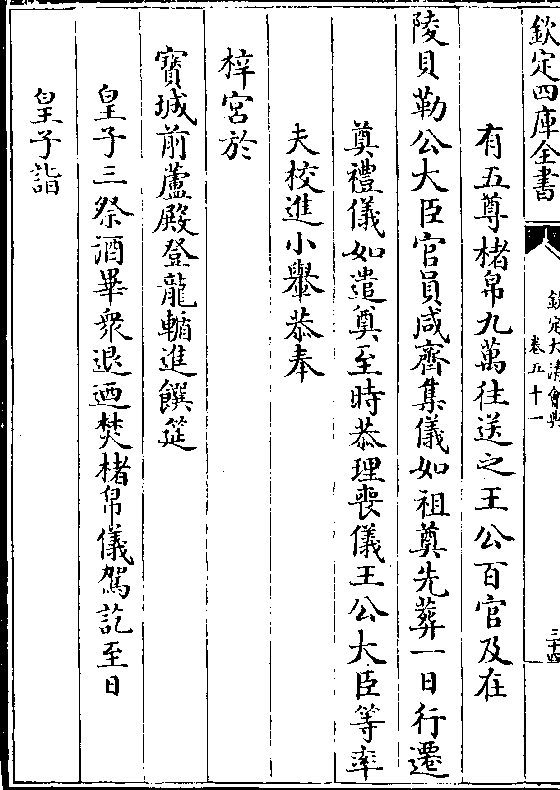 欽定四庫全書
欽定大清會典
卷五十一
三十四
有五尊楮帛九萬往送之王公百官及在
陵貝勒公大臣官員咸齊集儀如祖奠先葬一日行遷
奠禮儀如遣奠至時恭理喪儀王公大臣等率
夫校進小轝恭奉
梓宮於
寶城前蘆殿登龍輴進饌筵
皇子三祭酒畢衆退廼焚楮帛儀駕訖至日
皇子詣